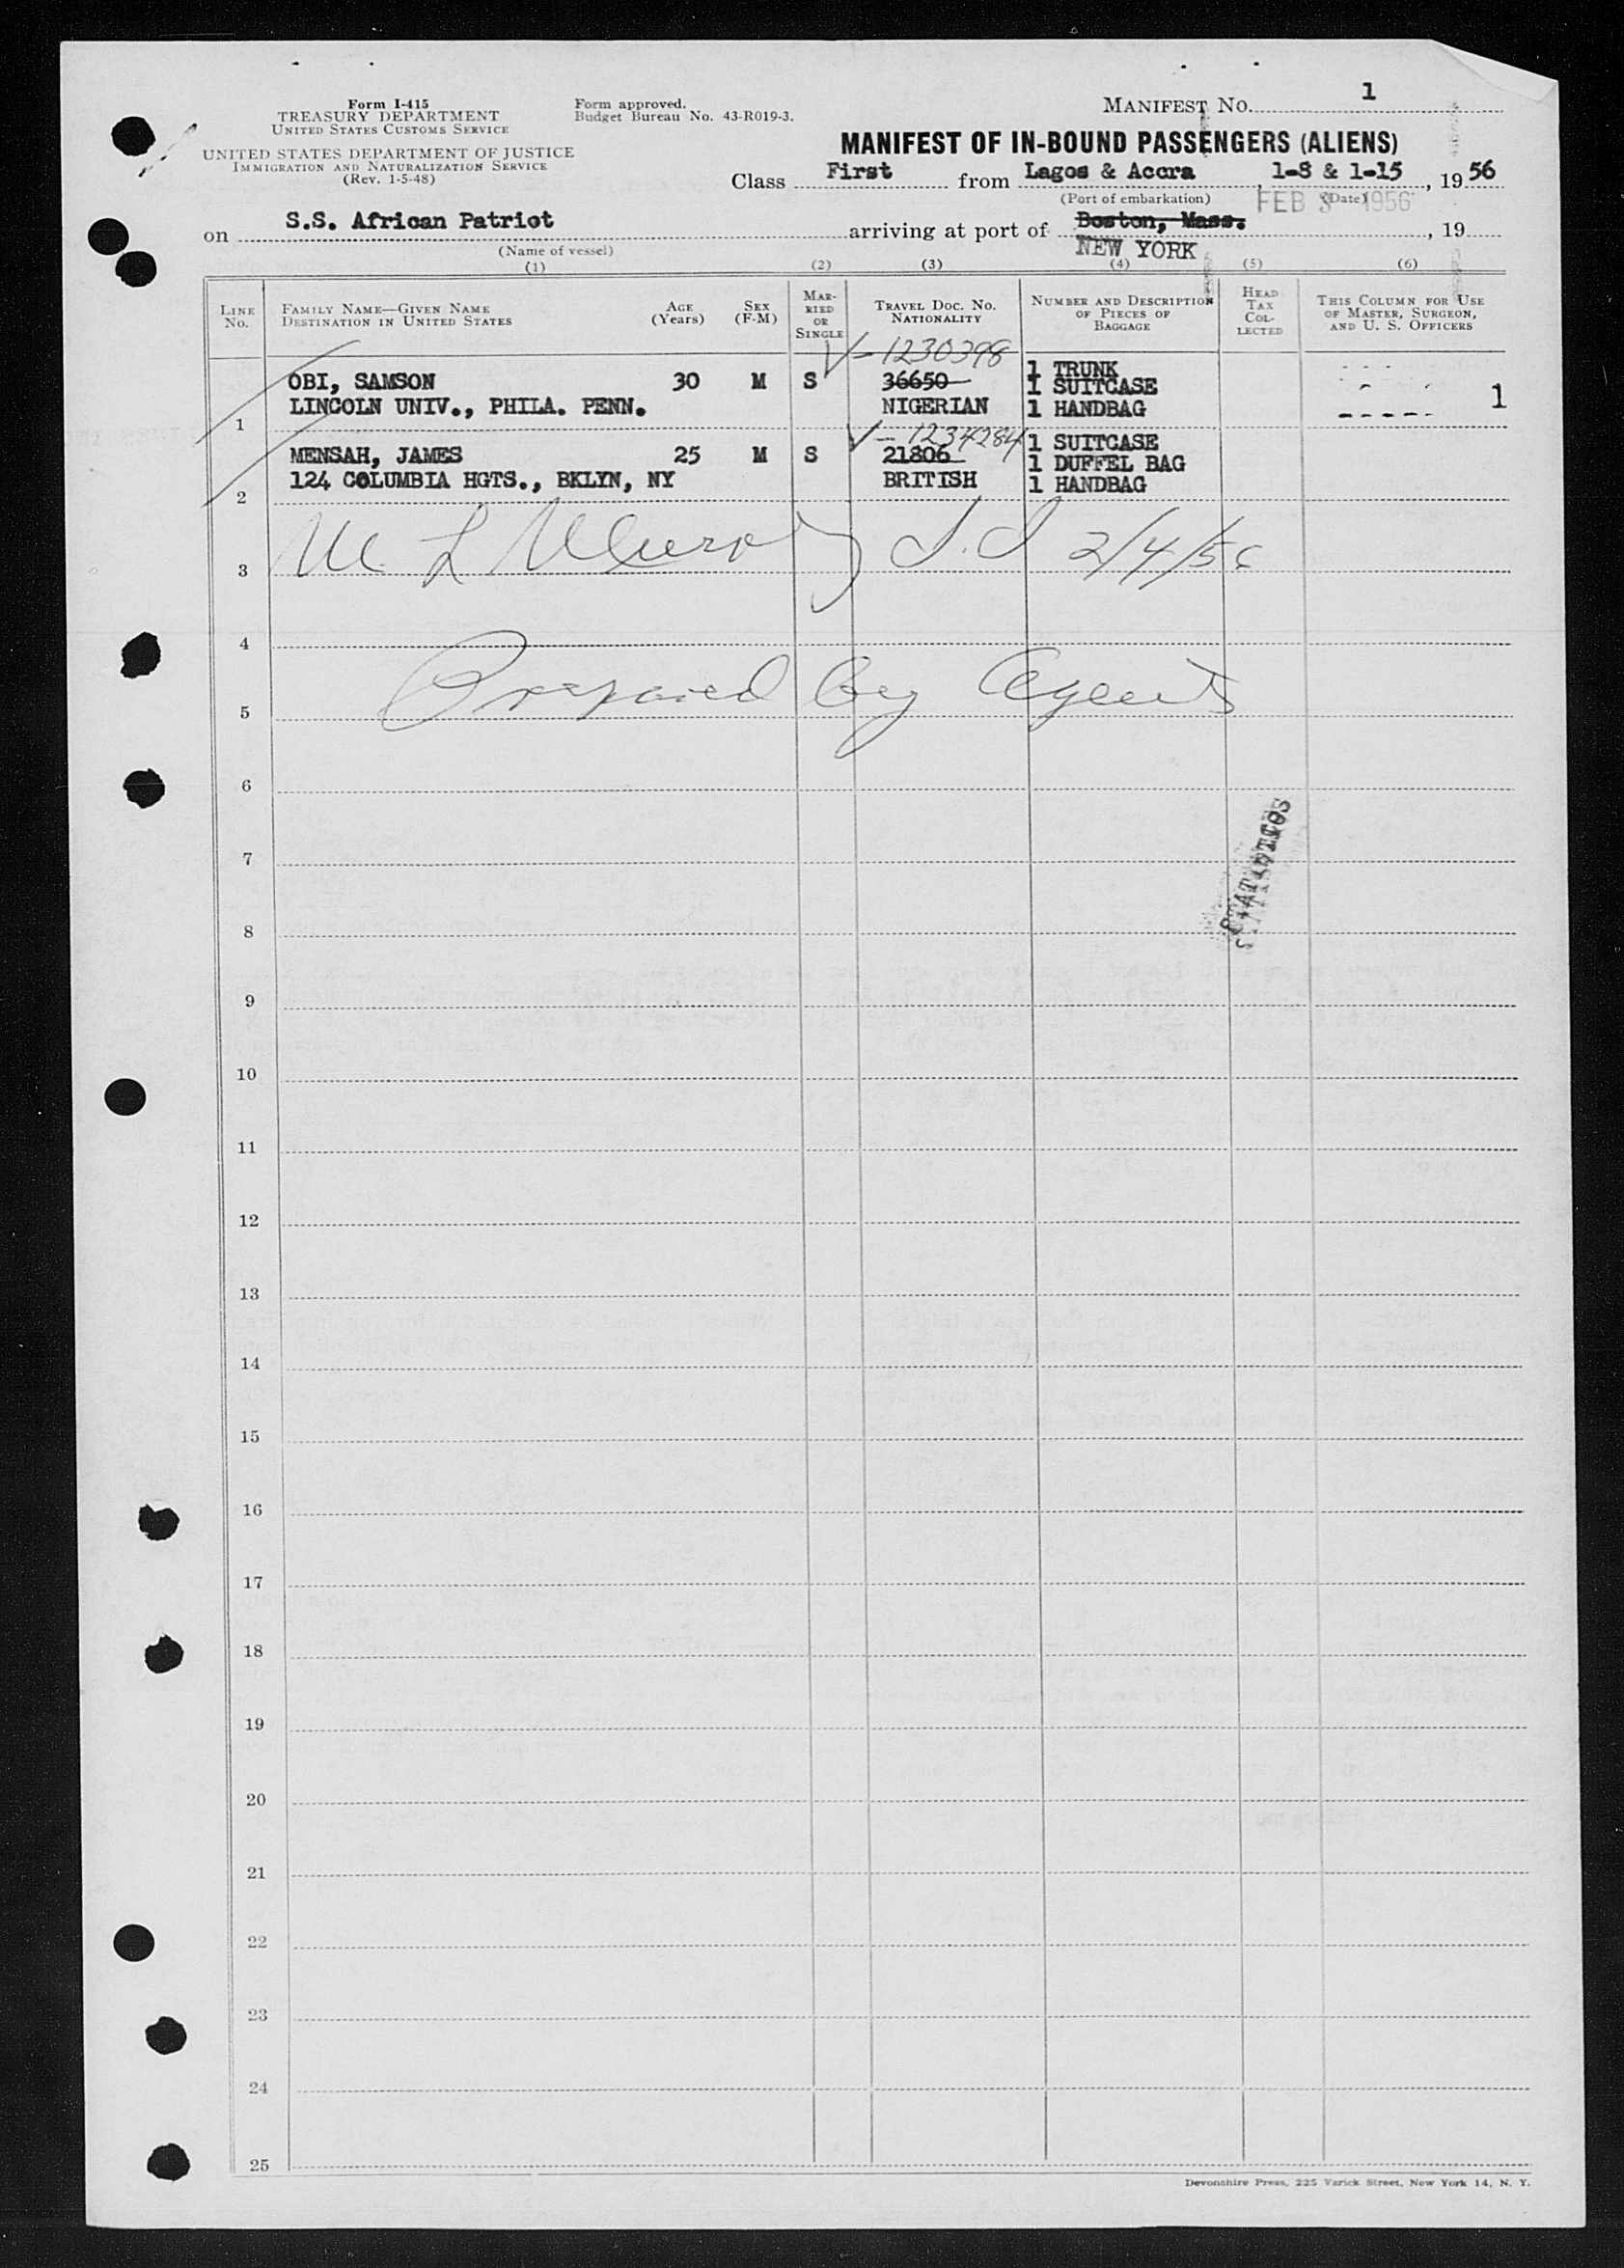 Form I-415
TREASURY DEPARTMENT
UNITED STATES CUSTOMS SERVICE
UNITED STATES DEPARTMENT OF JUSTICE
IMMIGRATION AND NATURALIZATION SERVICE
(Rev. 1-5-48)
Form approved.
Budget Bureau No. 43-R019-3.
MANIFEST NO. 1
MANIFEST OF IN-BOUND PASSENGERS (ALIENS)
Class First from Lagos & Accra, 1-8 & 1-15, 1956
(Port of embarkation) (Date)
FEB 3 1956
on S.S. African Patriot arriving at port of Boston, Mass., 19
(Name of vessel) NEW YORK
(1) (2) (3) (4) (5) (6)
LINE No.
FAMILY NAME—GIVEN NAME
DESTINATION IN UNITED STATES
AGE (Years)
SEX (F-M)
MAR-RIED OR SINGLE
TRAVEL DOC. NO. NATIONALITY
NUMBER AND DESCRIPTION OF PIECES OF BAGGAGE
HEAD TAX COL-LECTED
THIS COLUMN FOR USE OF MASTER, SURGEON, AND U. S. OFFICERS
V-1230398
1 TRUNK
OBI, SAMSON 30 M S 36650 1 SUITCASE
LINCOLN UNIV., PHILA. PENN. NIGERIAN 1 HANDBAG 1
1
V-1234284
1 SUITCASE
MENSAH, JAMES 25 M S 21806 1 DUFFEL BAG
124 COLUMBIA HGTS., BKLYN, NY BRITISH 1 HANDBAG
2
M L 2/4/56
3
4
Prepared by Agents
5
6
7
8
9
10
11
12
13
14
15
16
17
18
19
20
21
22
23
24
25
Devonshire Press, 225 Varick Street, New York 14, N. Y.